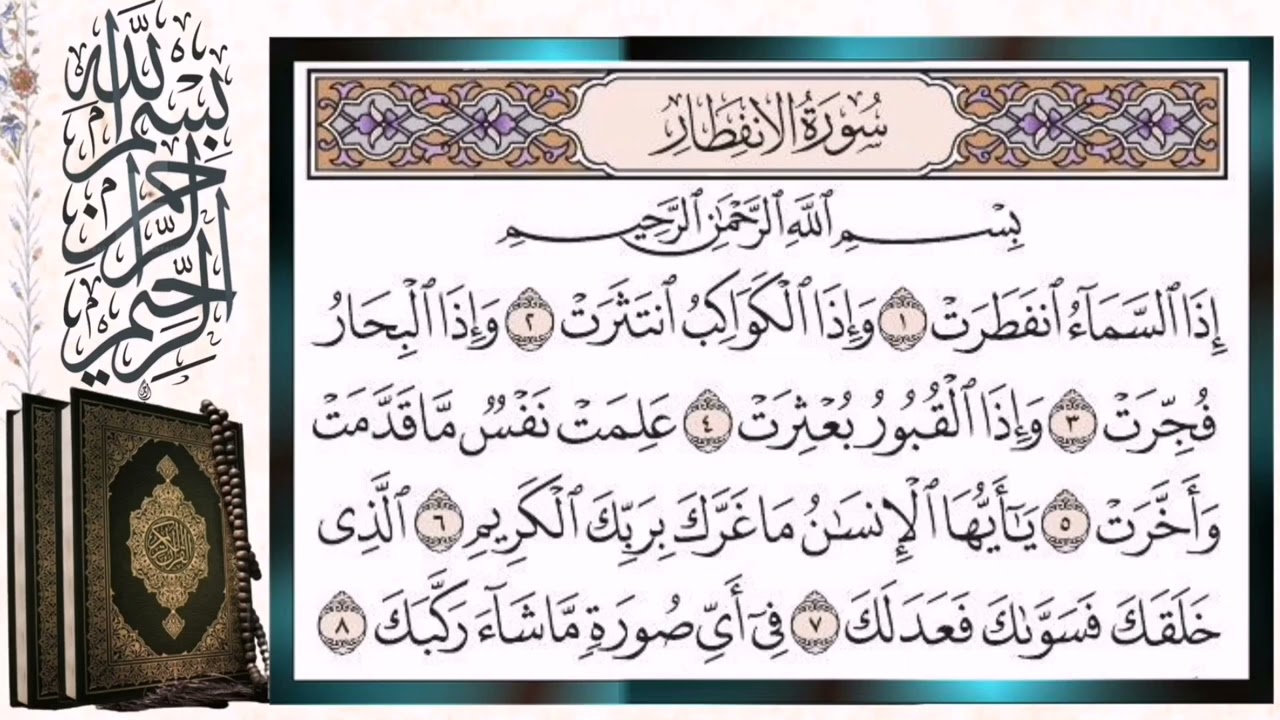 بسم الله الرحمن الرحيم
سُورَةُ الِانفِطَارِ
بِسْمِ ٱللَّهِ ٱلرَّحْمَٰنِ ٱلرَّحِيمِ
إِذَا ٱلسَّمَآءُ ٱنفَطَرَتْ ١ وَإِذَا ٱلْكَوَاكِبُ ٱنتَثَرَتْ ٢ وَإِذَا ٱلْبِحَارُ
فُجِّرَتْ ٣ وَإِذَا ٱلْقُبُورُ بُعْثِرَتْ ٤ عَلِمَتْ نَفْسٌ مَّا قَدَّمَتْ
وَأَخَّرَتْ ٥ يَٰٓأَيُّهَا ٱلْإِنسَٰنُ مَا غَرَّكَ بِرَبِّكَ ٱلْكَرِيمِ ٦ ٱلَّذِى
خَلَقَكَ فَسَوَّىٰكَ فَعَدَلَكَ ٧ فِىٓ أَىِّ صُورَةٍ مَّا شَآءَ رَكَّبَكَ ٨
القرآن الكريم